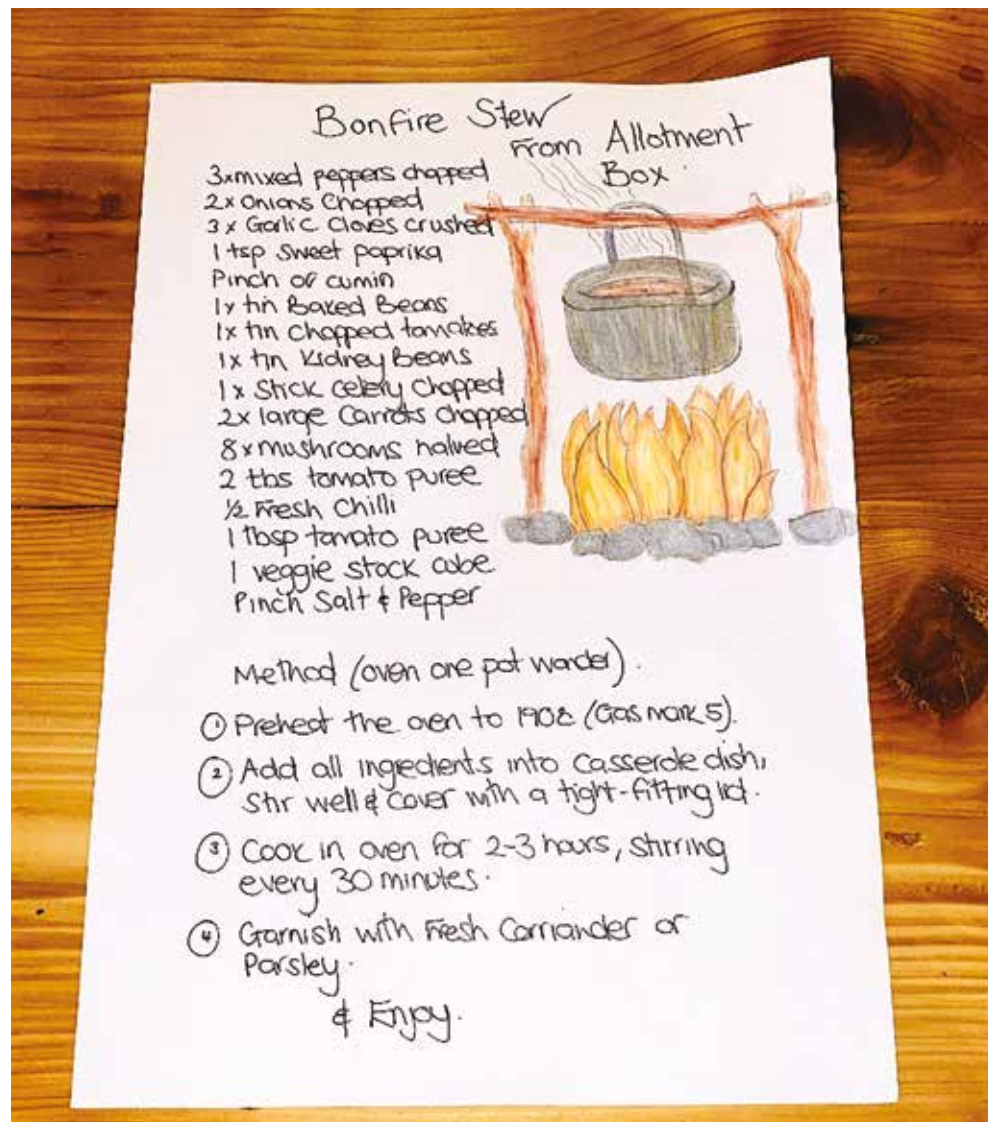 Bonfire Stew
From Allotment
Box.
3xmixed peppers chopped
2x Onions Chopped
3 x Garlic Cloves crushed
1 tsp sweet paprika
Pinch of cumin
1x tin Baked Beans
1x tin Chopped tomatoes
1x tin Kidney Beans
1x Stick Celery Chopped
2x large Carrots chopped
8x mushrooms halved
2 tbs tomato puree
½ Fresh Chilli
1 Tbsp tomato puree
1 veggie stock cube
Pinch Salt & Pepper
Method (oven one pot wonder).
1 Preheat the oven to 190c (Gas mark 5).
2 Add all ingredients into casserole dish,
stir well & cover with a tight-fitting lid.
3 Cook in oven for 2-3 hours, stirring
every 30 minutes.
4 Garnish with Fresh Corriander or
Parsley.
& Enjoy.